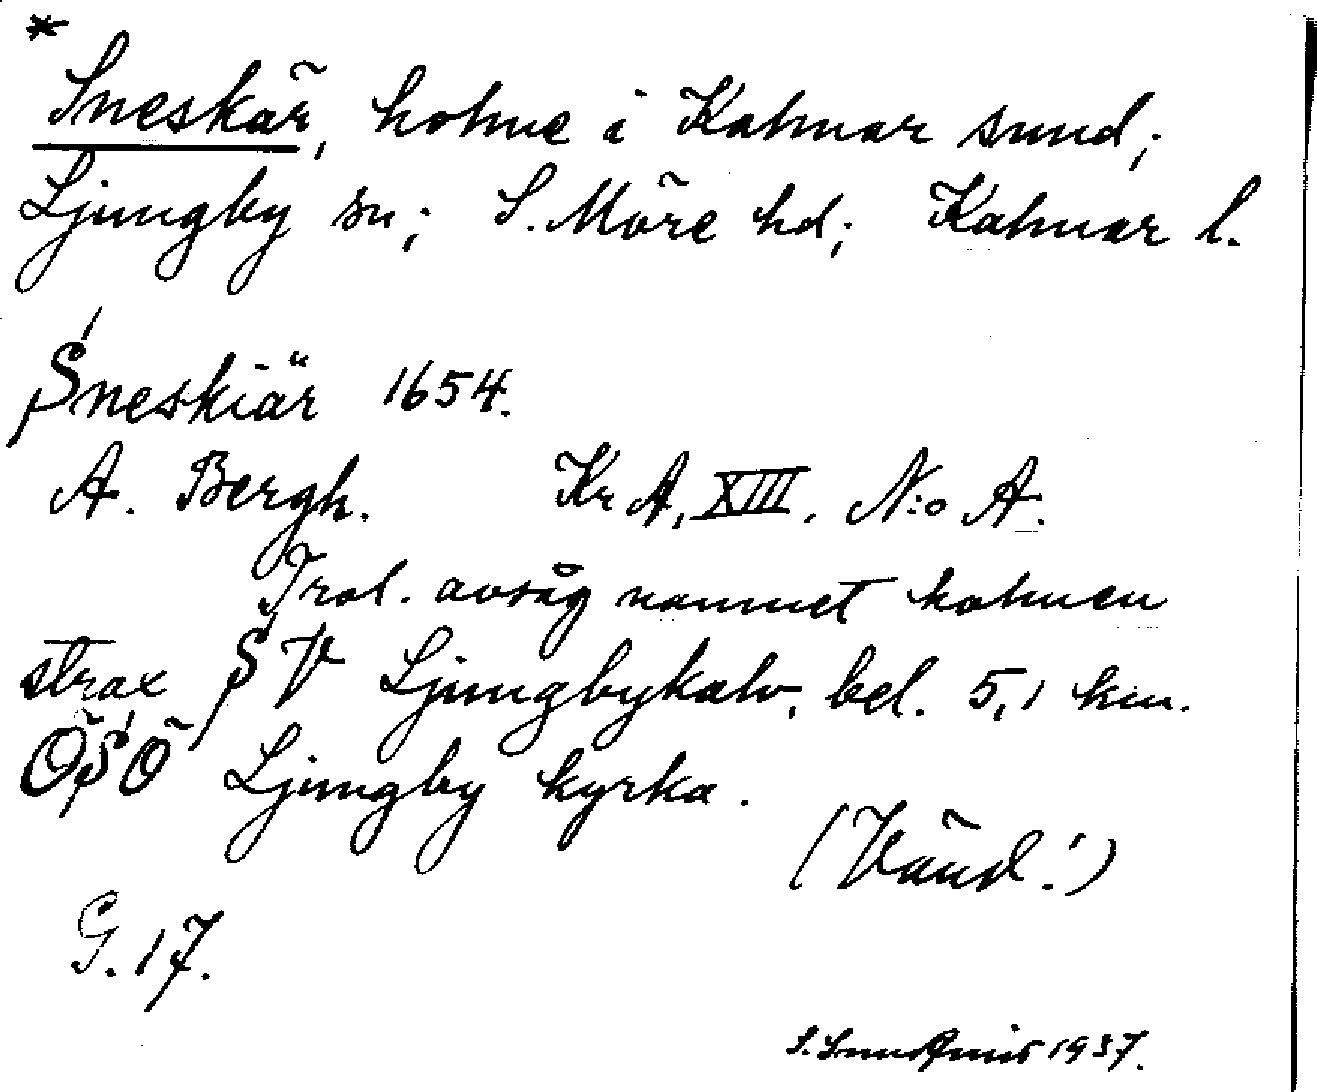 *
Sneskär, holme i Kalmar sund;
Ljungby sn; S. Möre hd; Kalmar l.
Sneskiär 1654.
A. Bergh. Kr A, XIII. N:o A.
Trol. avsåg namnet holmen
strax SV Ljungbykalv, bel. 5,1 km.
ÖSÖ Ljungby kyrka.
(Vänd!)
G. 17.
S. Lundquist 1937.